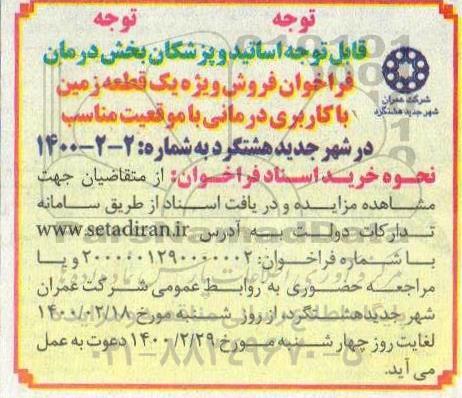 توجه توجه
قابل توجه اساتید و پزشکان بخش درمان
فراخوان فروش ویژه یک قطعه زمین
با کاربری درمانی با موقعیت مناسب
شرکت عمران
شهر جدید هشتگرد
در شهر جدید هشتگرد به شماره: ۲-۲-۱۴۰۰
نحوه خرید اسناد فراخوان: از متقاضیان جهت
مشاهده مزایده و دریافت اسناد از طریق سامانه
تدارکات دولت به آدرس www.setadiran.ir
با شماره فراخوان: ۲۰۰۰۰۰۱۲۹۰۰۰۰۰۰۲ و یا
مراجعه حضوری به روابط عمومی شرکت عمران
شهر جدید هشتگرد، از روز شنبه مورخ ۱۴۰۰/۰۲/۱۸
لغایت روز چهارشنبه مورخ ۱۴۰۰/۲/۲۹ دعوت به عمل
می آید.
۰۲۱-۸۸۳۴۹۶۷۰-۵